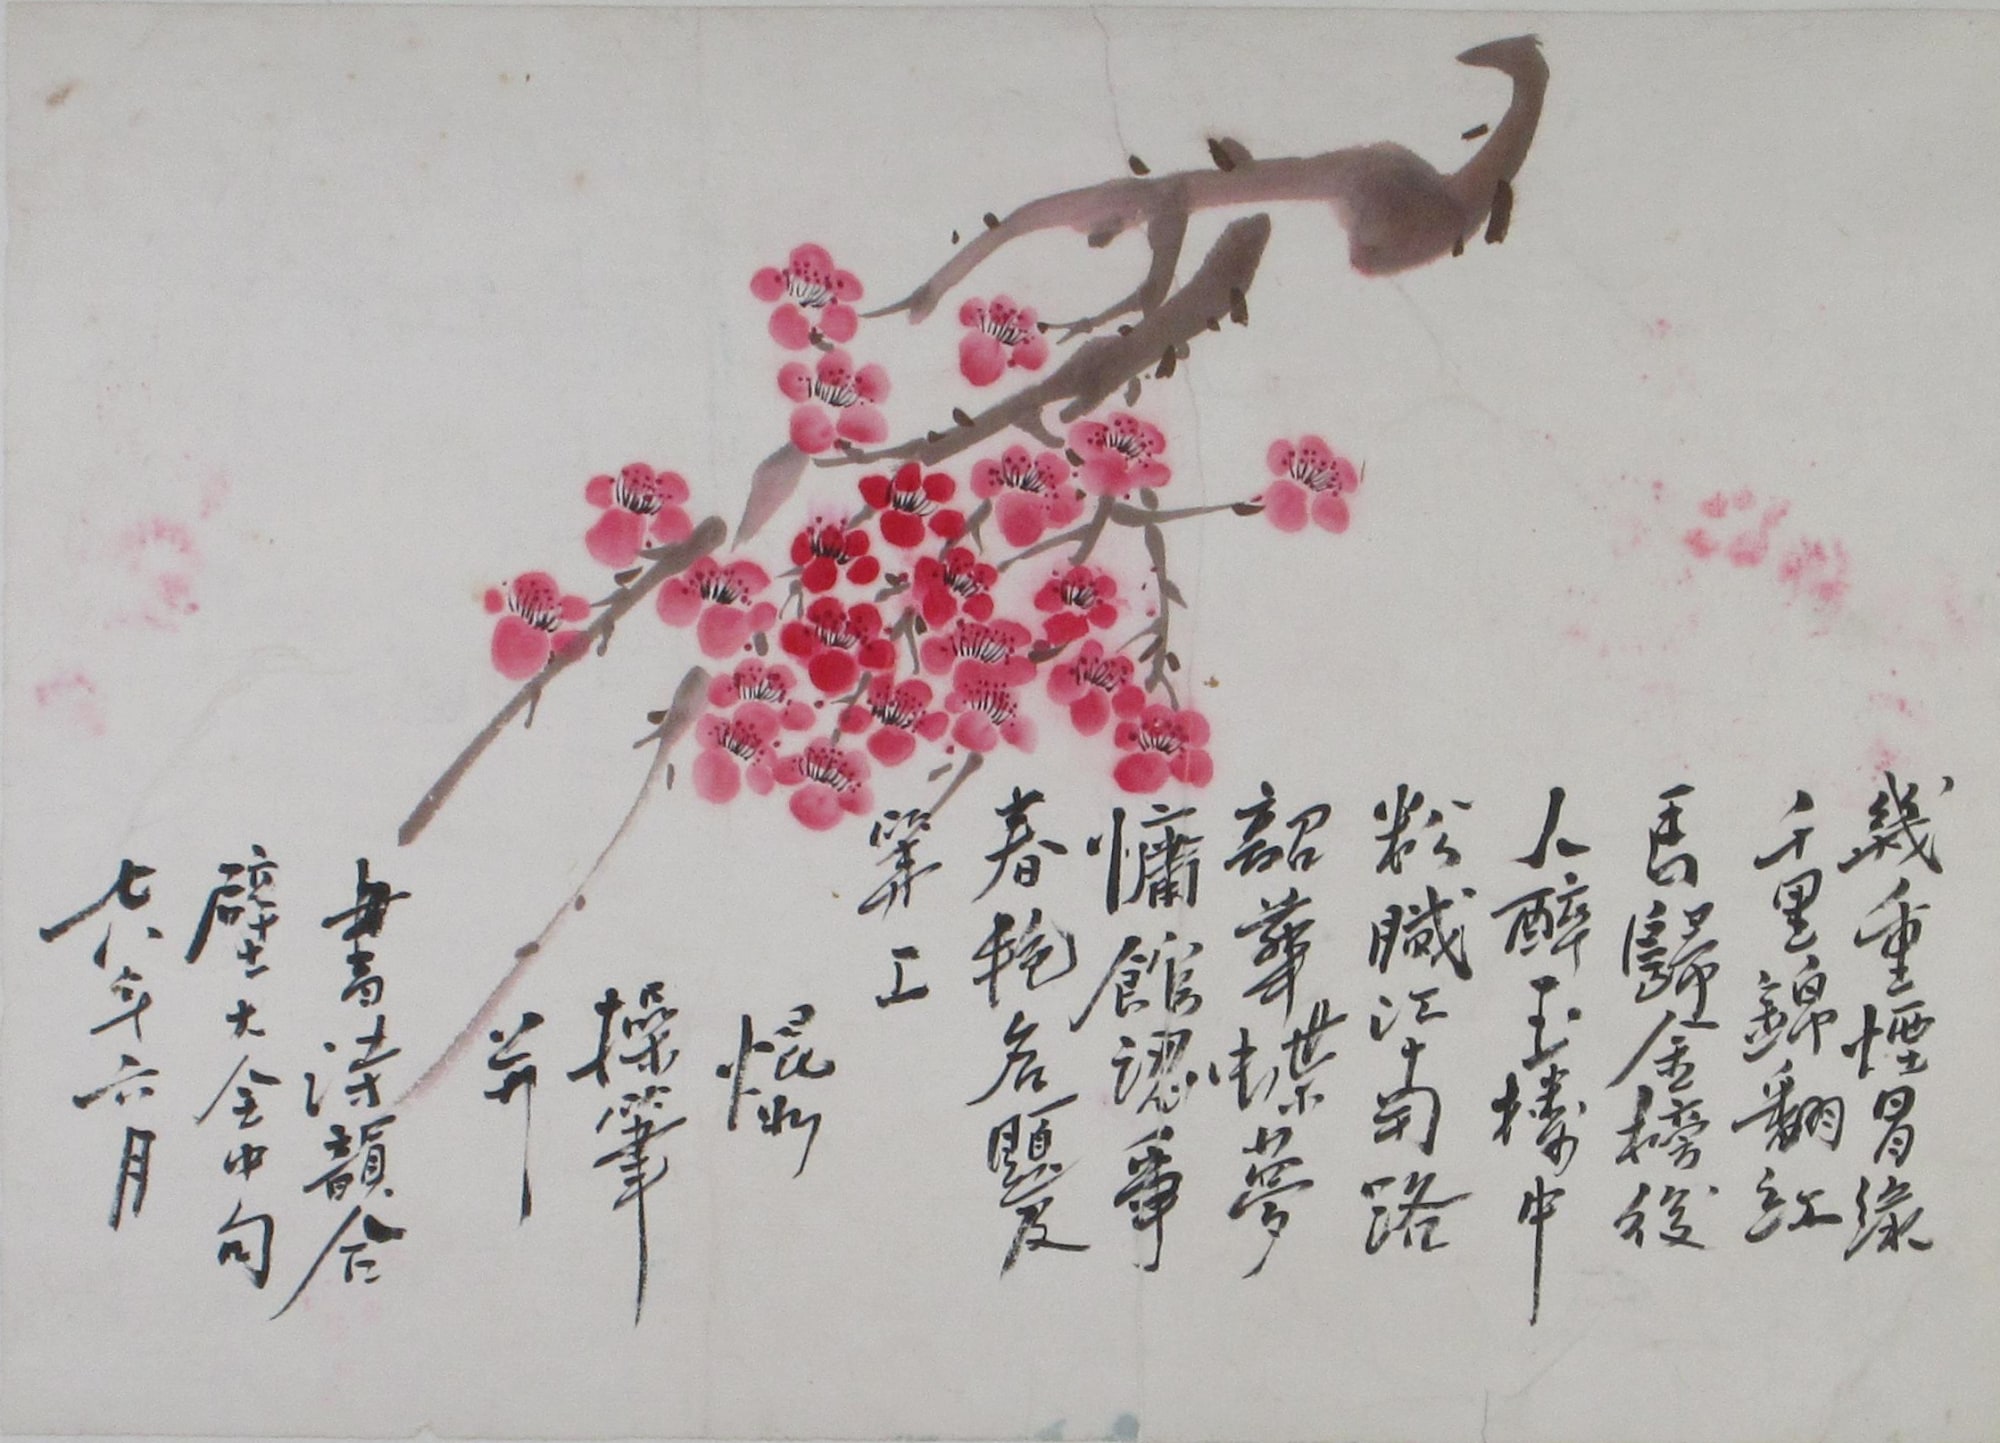 幾重煙冒綠
千里錦翻紅
馬歸金榜後
人醉玉樓中
粉膩江南路
韶華蝶夢
慵館認爭
春艳名題
工
操筆
並
書詩韻合
璧大全中句
七八年六月